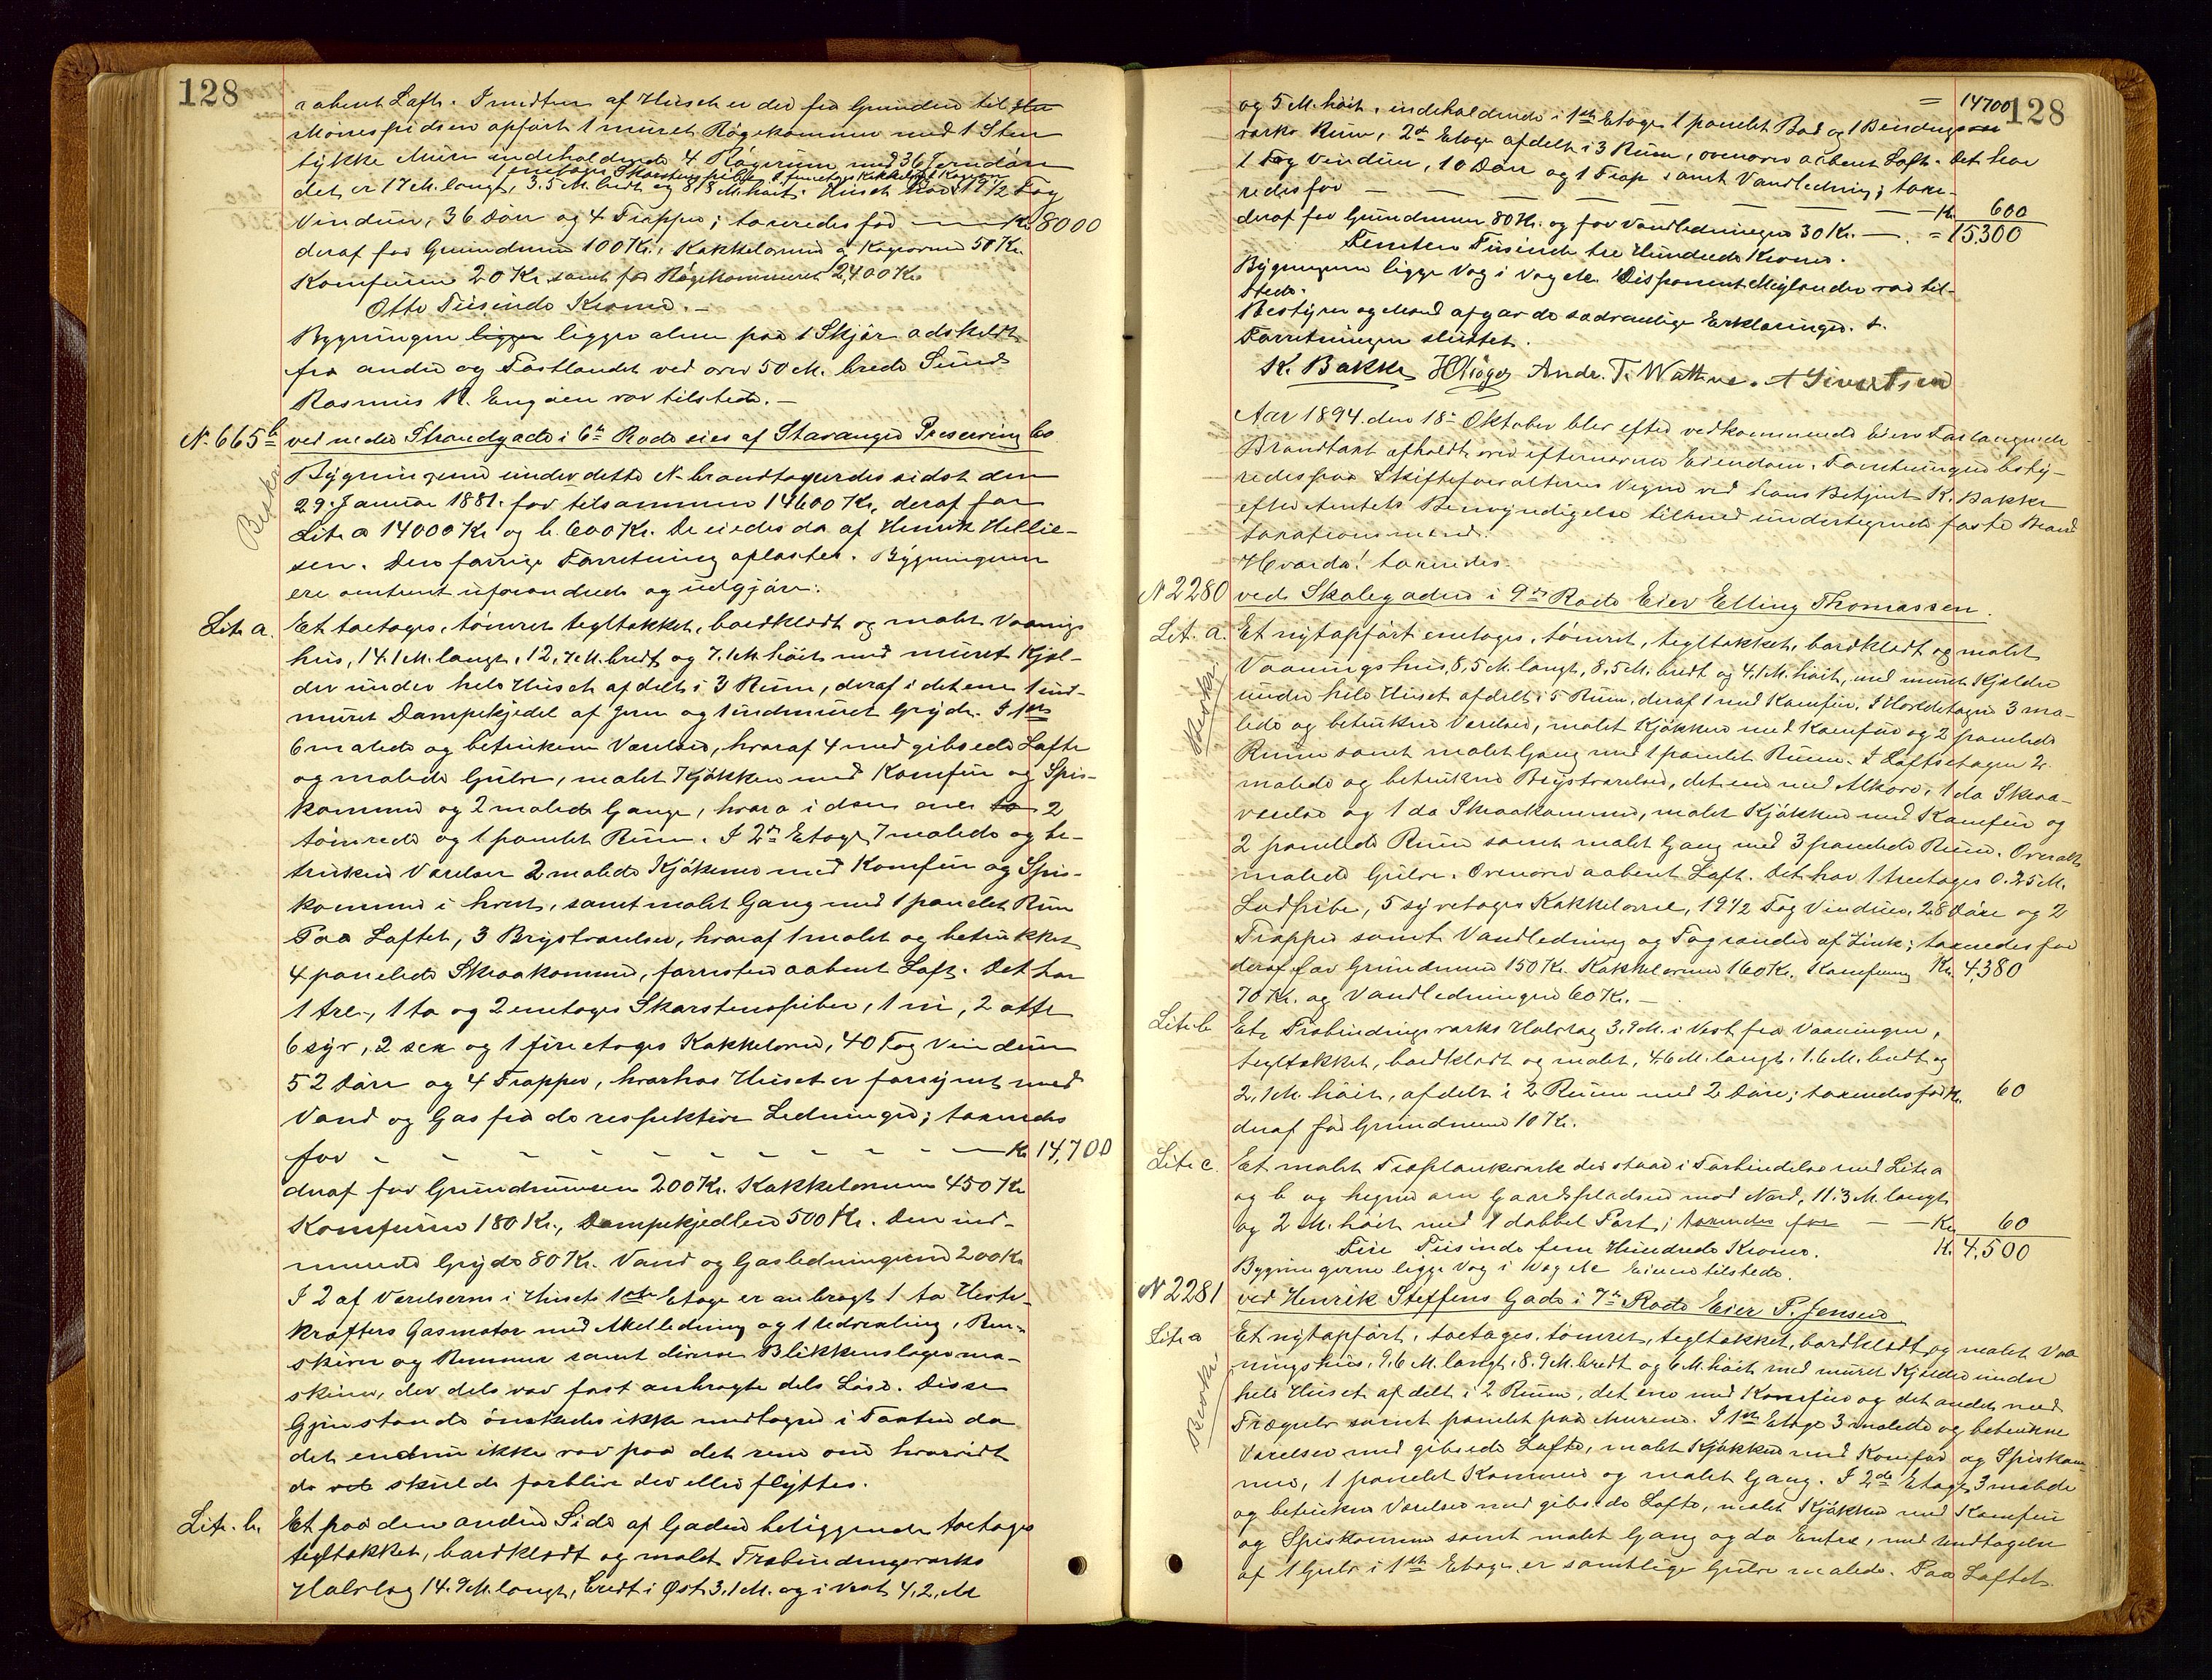 128
aabent Loft. I midten af Huset er der fra Grunden til
Mønespidsen opført 1 muret Røgekammer med 1 Sten
tykke Mure indeholdende 4 Røgerum med 36 Jerndøre
1 enetages Skorstenspibe, 1 Kakkelovn
det er 17 M. langt, 3.5 M. bredt og 8.8 M. høit. Huset har 17 1/2 Fag
Vinduer, 36 Døre og 4 Trapper; taxeredes for — Kr. 8000
deraf for Grundmuren 100 Kr., Kakkelovnen og Kogeovnen 50 Kr.
Komfuren 20 Kr. samt for Røgekammeret 2,400 Kr.
Otte Tusinde Kroner. —
Bygningen ligger ligger alene paa 1 Skjær adskeldt
fra andre og Fastlandet ved over 50 M. brede Sund
Rasmus R. Engøen var tilstede. —
N. 665 b ved nedre Strandgade i 6te Rode eies af Stavanger Preserving Co
Beskr.
Bygningerne under dette N. brandtaxeredes sidst den
29. Januar 1881. for tilsammen 14600 Kr., deraf for
Litr a 14000 Kr. og b. 600 Kr. De eiedes da af Henrik Hellie-
sen. Den forrige Forretning oplæstes. Bygningerne
ere omtrent uforandrede og udgjøre:
Litr. a. Et toetages, tømret, tegltækket, bordklædt og malet Vaanings
hus, 14.1 M. langt, 12,7 M. bredt og 7.1 M. høit med muret Kjæl-
der under hele Huset afdelt i 3 Rum, deraf i det ene 1 ind-
muret Dampkjedel af Jern og 1 indmuret Gryde. I 1ste
6 malede og betrukne Værelser, hvoraf 4 med gibsede Lofte
og malede Gulve, malet Kjøkken med Komfur og Spis-
kammer og 2 malede Gange, hvoraf i den ene to 2
tømrede og 1 panelet Rum. I 2den Etage 7 malede og be-
trukne Værelser 2 malede Kjøkkener med Komfur og Spis-
kammer i hvert, samt malet Gang med 1 panelet Rum
Paa Loftet, 3 Brystværelser, hvoraf 1 malet og betrukket
4 panelede Skraakammer, forresten aabent Loft. Det har
1 tre-, 1 to og 2 enetages Skorstenspiber, 1 ni, 2 otte
6 syv, 2 sex og 1 fire etages Kakkelovne, 40 Fag Vinduer
52 Døre og 4 Trapper, hvorhos Huset er forsynet med
Vand og Gas fra de respektive Ledninger; taxeredes
for — — — — — — — — — — Kr. 14,700
deraf for Grundmuren 200 Kr. Kakkelovnene 450 Kr
Komfurene 180 Kr., Dampkjedlen 500 Kr. Den ind-
murede Gryde 80 Kr. Vand og Gasledningerne 200 Kr
I 2 af Værelserne i Husets 1ste Etage er anbragt 1 to Heste-
kræfters Gasmotor med Axelledning og 1 Udvexling, Rem-
skiver og Remmer samt diverse Blikkenslagerma-
skiner, der dels var fast anbragte dels Løse. Disse
Gjenstande ønskedes ikke medtaget i Taxten da
det endnu ikke var paa det rene om hvorvidt
de vil skulde forblive der eller flyttes.
Litr. b. Et paa den anden Side af Gaden beliggende toetages
tegltækket, bordklædt og malet Træbindingsværks
Halvtag 14.9 M. langt, bredt i Øst 3,1 M. og i Vest 4,2 M
= 14700 128
og 5 M. høit, indeholdende i 1ste Etage 1 panelet Bod og 1 Bindings
værks Rum, 2den Etage afdelt i 3 Rum, ovenover aabent Loft. Det har
1 Fag Vinduer, 10 Døre og 1 Trap samt Vandledning; taxe-
redes for — — — — — — — — Kr. 600
deraf for Grundmuren 80 Kr. og for Vandledningen 30 Kr. — = 15,300
Femten Tusinde tre Hundrede Kroner.
Bygningerne ligge Væg i Væg etc. Disponent Meylænder var til-
stede.
Bestyrer og Mænd afgav de sædvanlige Erklæringer. s.
Forretningen sluttet.
K. Bakke HHøyer Andr. T. Wathne. A Sivertsen
Aar 1894 den 18de Oktober blev efter vedkommende Eieres Forlangende
Brandtaxt afholdt over efternævnte Eiendom. Forretningen besty-
redes paa Skifteforvalterens Vegne ved hans Betjent K. Bakke
efter Amtets Bemyndigelse tilligemed undertegnede faste Brand
taxationsmænd.
Hvorda! taxeredes.
N 2280 ved Skolegaden i 9de Rode Eier Elling Thomassen.
Litr. a. Et nytopført enetages, tømret, tegltækket, bordklædt og malet
Beskr.
Vaaningshus, 8,5 M. langt, 8,5 M. bredt og 4,1 M. høit, med muret Kjælder
under hele Huset afdelt i 5 Rum, deraf 1 med Komfur. I Hovedetagen 3 ma-
lede og betrukne Værelser, malet Kjøkken med Komfur og 2 panelede
Rum samt malet Gang med 1 panelet Rum. I Loftsetagen 2
malede og betrukne Brystværelser, det ene med Alkove, 1 do Skraa-
værelse og 1 do Skraakammer, malet Kjøkken med Komfur og
2 panelede Rum samt malet Gang med 3 panelede Rum. Overalt
malede Gulve. Ovenover aabent Loft. Det har 1 tretages 0.25 M.
Ludpibe, 5 syvetages Kakkelovne, 19 1/2 Fag Vinduer, 28 Døre og 2
Trapper samt Vandledning og Tagrender af Zink; taxeredes for
deraf for Grundmuren 150 Kr. Kakkelovnene 160 Kr. Komfurene Kr. 4,380
70 Kr. og Vandledningen 60 Kr. —
Litr. b Et Træbindingsværks Halvtag 3.9 M. i Vest fra Vaaningen,
tegltækket, bordklædt og malet, 4.6 M. langt, 1.6 M. bredt og
2,1 M. høit, afdelt i 2 Rum med 2 Døre; taxeredes for Kr. 60
deraf for Grundmuren 10 Kr.
Litr. c. Et malet Træplankeværk der staar i Forbindelse med Litr. a
og b og hegner om Gaardspladsen mod Nord, 11.3 M. langt
og 2 M. høit med 1 dobbel Port; taxeredes for — — Kr. 60
Fire Tusinde fem Hundrede Kroner. Kr. 4,500
Bygningerne ligge Væg i Væg etc Eieren tilstede.
N 2281 ved Henrik Steffens Gade i 7de Rode Eier P. Jensen
Litr. a Et nytopført, toetages, tømret, tegltækket, bordklædt og malet Vaa
Beskr.
ningshus, 9,6 M. langt, 8.9 M. bredt og 6 M. høit med muret Kjælder under
hele Huset afdelt i 2 Rum, det ene med Komfur og det andet med
Trægulv samt panelet paa Murene. I 1ste Etage 3 malede og betrukne
Værelser med gibsede Lofte, malet Kjøkken med Komfur og Spiskam
mer, 1 panelet Kammer og malet Gang. I 2den Etage 3 malede
og betrukne Værelser med gibsede Lofte, malet Kjøkken med Komfur
og Spiskammer samt malet Gang og do Entre, med Undtagelse
af 1 Gulv i 1ste Etage er samtlige Gulve malede. Paa Loftet